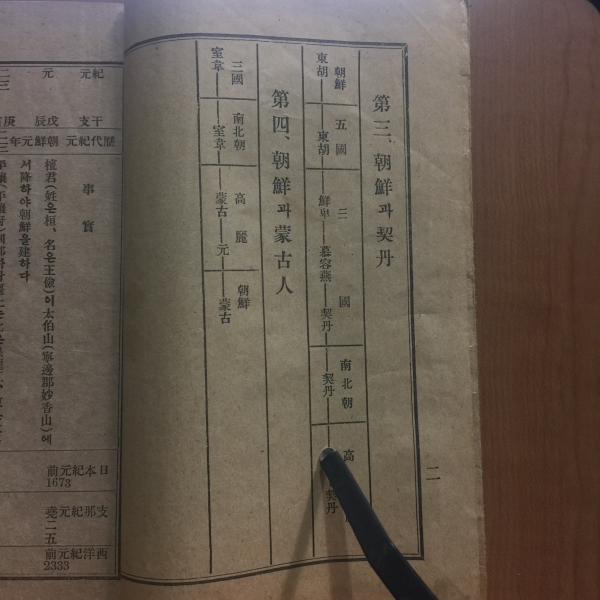 二
第三、朝鮮과契丹
朝鮮 五國 三國 南北朝 高
東胡──東胡──鮮卑──慕容燕──契丹──契丹──契丹
第四、朝鮮과蒙古人
三國 南北朝 高麗 朝鮮
室韋──室韋──蒙古──元──蒙古
紀元
干支 戊辰
歷代紀元 朝鮮元年
事實
檀君(姓은桓、名은王儉)이太伯山(寧邊郡妙香山)에
서降하야朝鮮을建하다
日本紀元前
1673
支那紀元
堯二五
西洋紀元前
2333